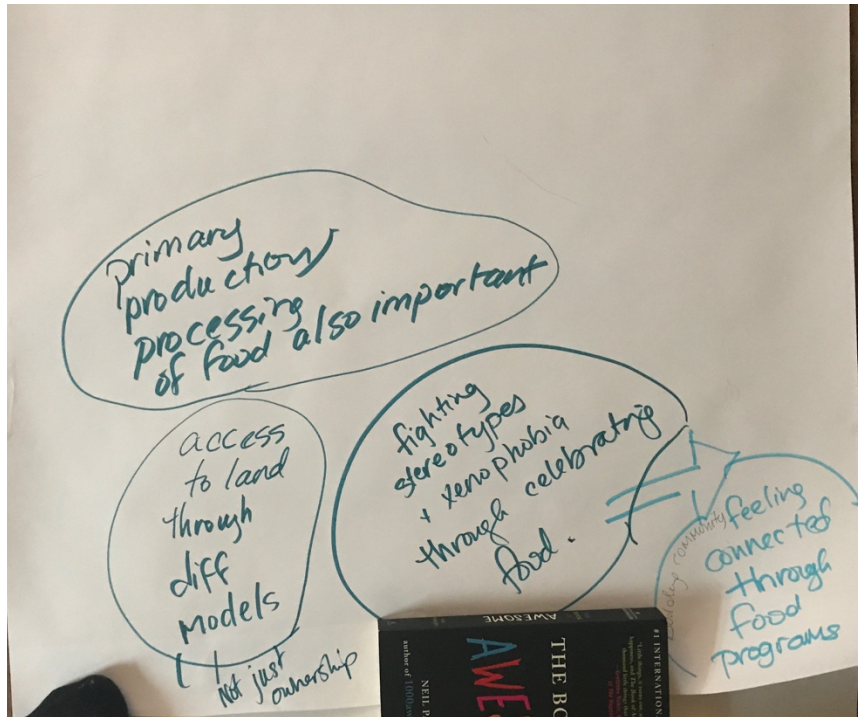 primary
production/
processing
of food also important
access
to land
through
diff
models
Not just
ownership
fighting
stereotypes
+ xenophobia
through celebrating
food.
Building community
feeling
connected
through
food
programs
AWESOME
THE BO
AWE
NEIL P
author of 1000aw
#1 INTERNATION